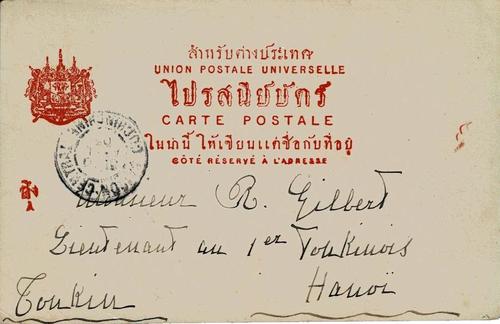 สำหรับต่างประเทศ
UNION POSTALE UNIVERSELLE
ไปรสนียบัตร์
CARTE POSTALE
ในน่านี้ ให้เขียนแต่ชื่อกับที่อยู่
CÔTÉ RÉSERVÉ A L'ADRESSE
CENTRAL COCHINCHINE
Monsieur R. Gilbert
Lieutenant au 1er Tonkinois
Hanoï
Tonkin